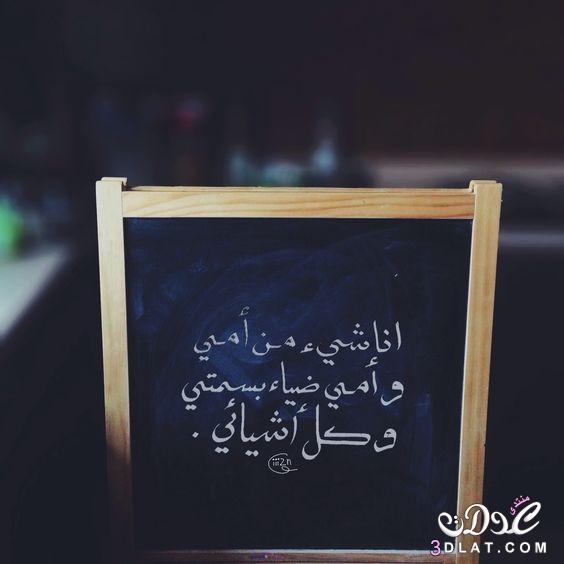 انا شيء من أمي
وأمي ضياء بسمتي
وكل أشيائي .
منتدى
عدلات
3DLAT.COM